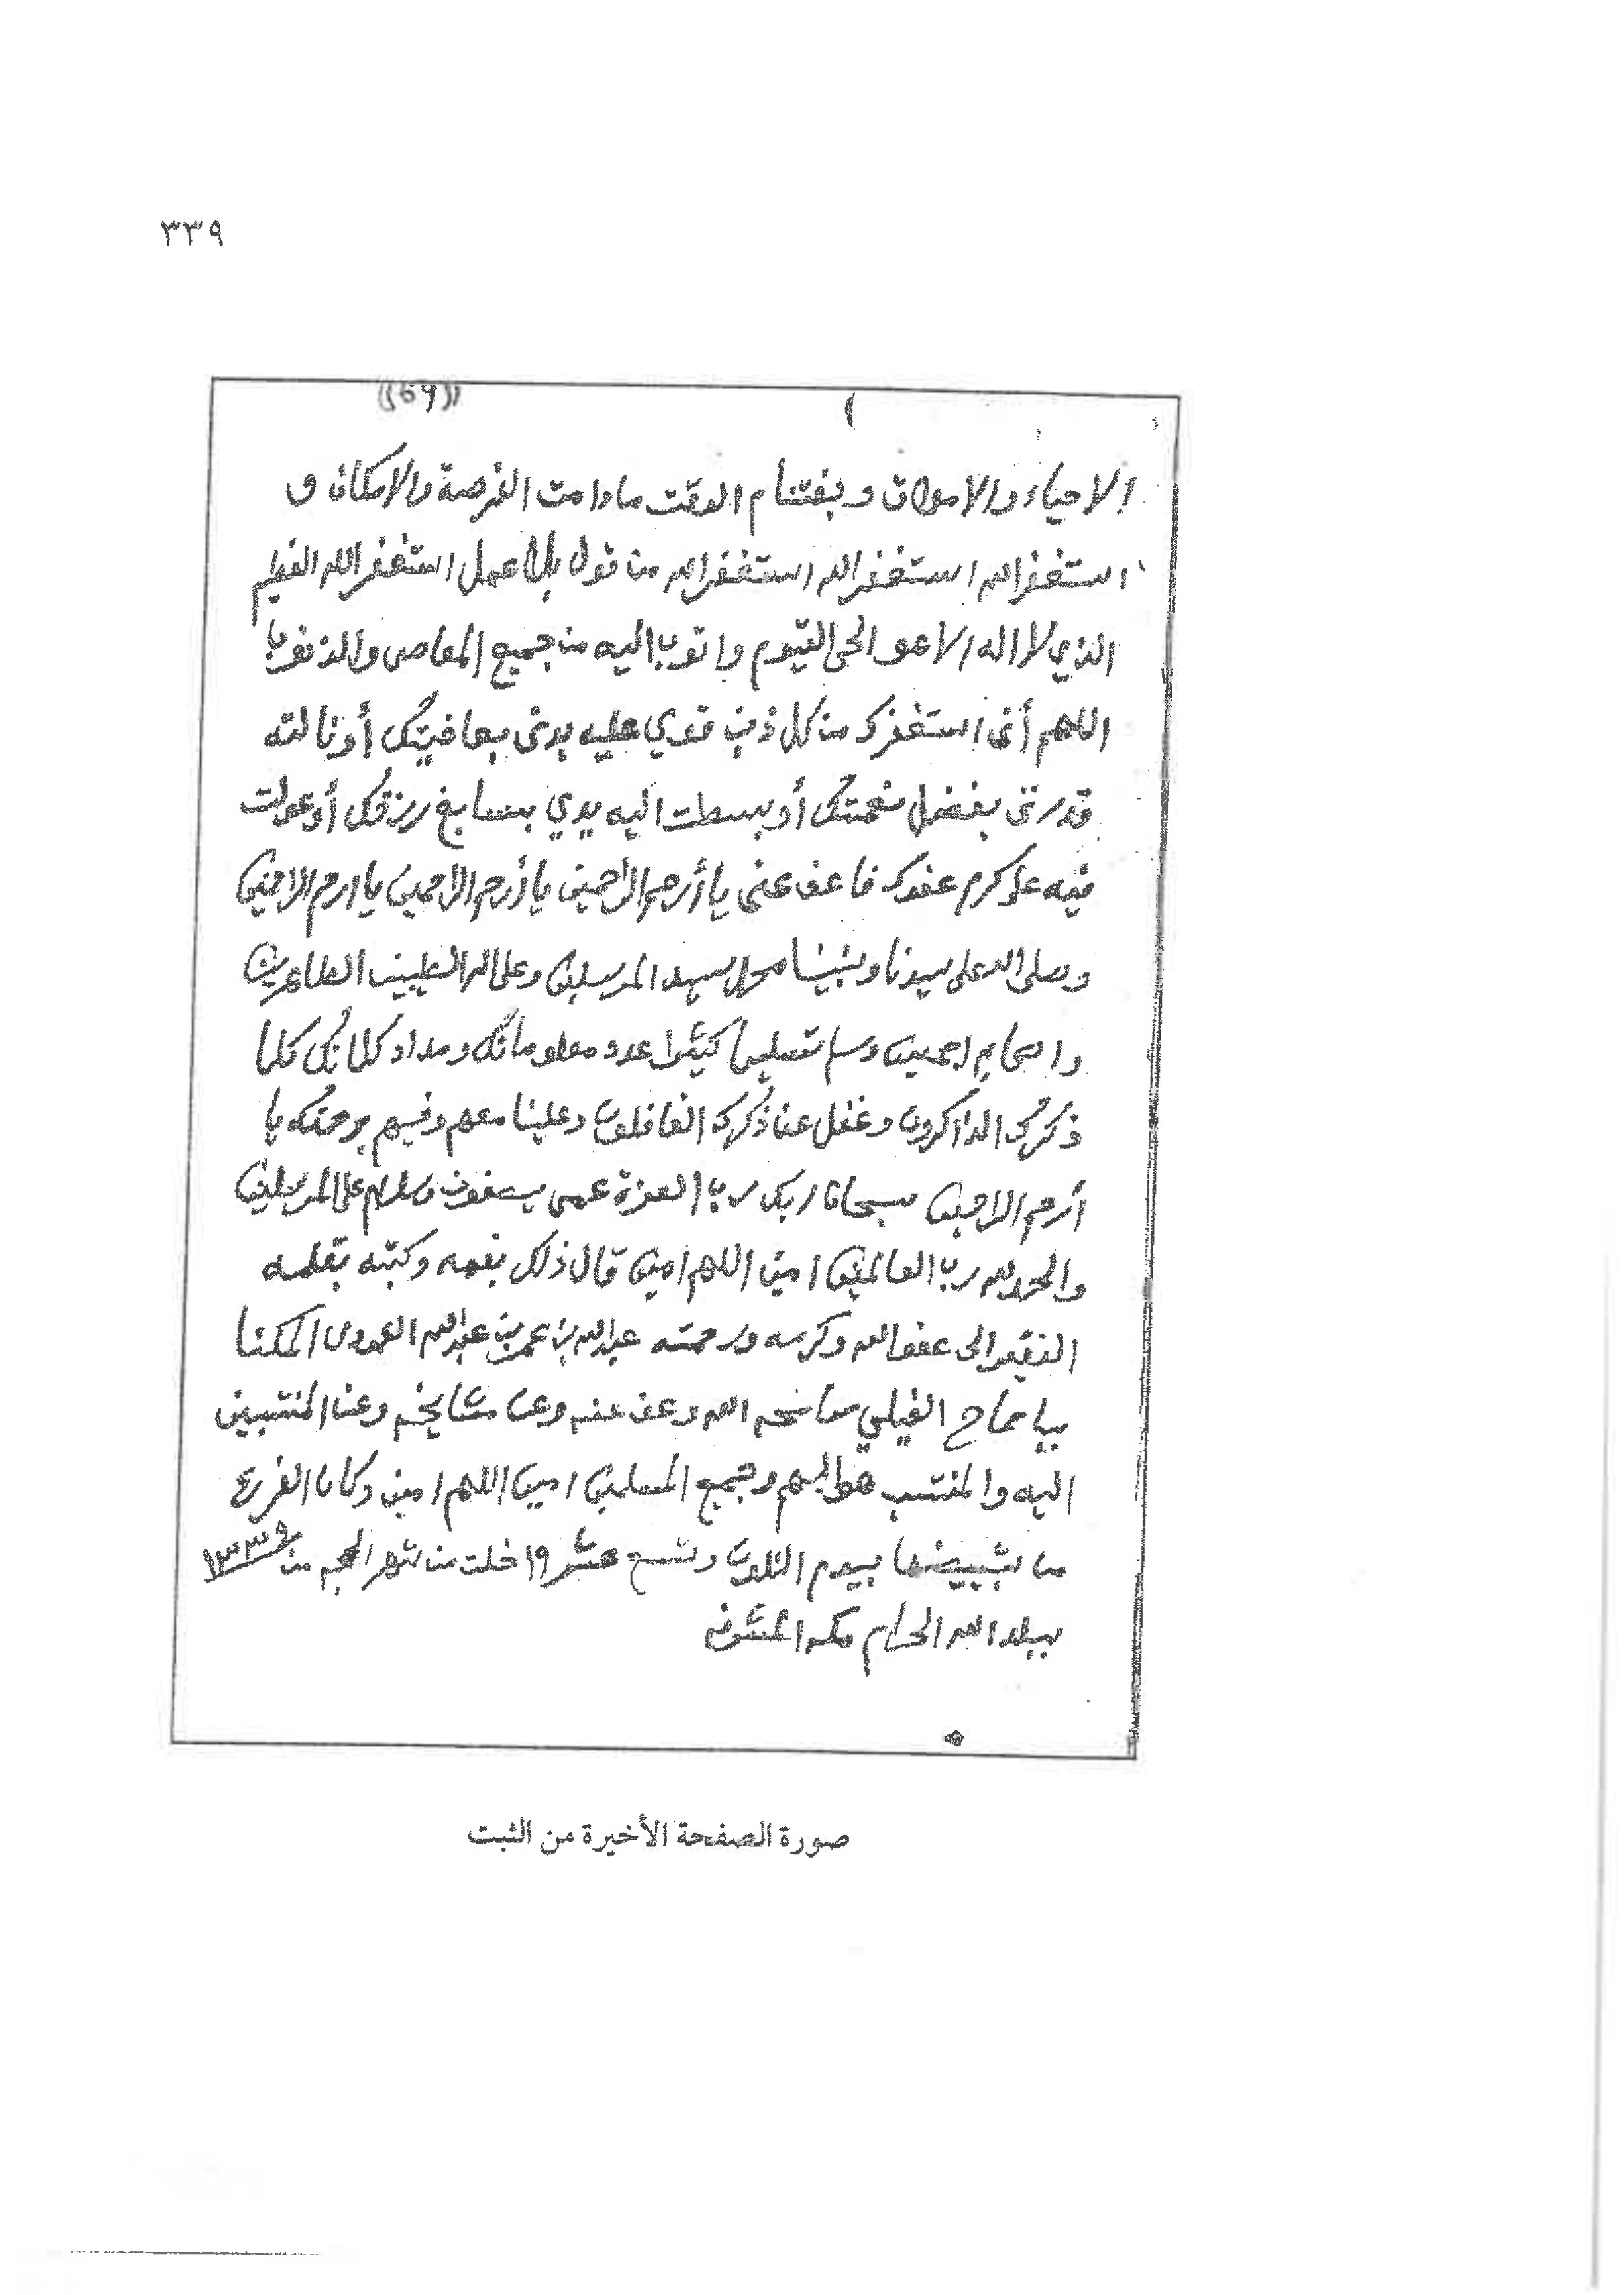 ٣٣٩
((69))
الاحياء والاموات وبغتنام الوقت مادامت الفرصة والامكان و
استغفر الله استغفر الله استغفر الله من قول بلا عمل استغفر الله العظيم
الذي لا اله الا هو الحي القيوم واتوب اليه من جميع المعاصي والذنوب
اللهم أني استغفرك من كل ذنب قوي عليه بدني بعافيتك أو نالته
قدرتي بفضل نعمتك أو بسطت اليه يدي بسابغ رزقك أو عولت
فيه على كرم عفوك فاعف عني يا أرحم الراحمين يا أرحم الراحمين يا ارحم الراحمين
وصلى الله على سيدنا ونبينا محمد سيد المرسلين وعلى اله الطيبين الطاهرين
واصحابه اجمعين وسلم تسليما كثيرا عدد معلوماتك ومداد كلماتك كلما
ذكرك الذاكرون وغفل عن ذكرك الغافلون وعلينا معهم وفيهم برحمتك يا
أرحم الراحمين سبحان ربك رب العزة عمى يصفون وسلام على المرسلين
والحمد لله رب العالمين امين اللهم امين قال ذلك بفمه وكتبه بقلمه
الفقير الى عفو الله وكرمه ورحمته عبدالله بن عمر بن عبدالله العمودي المكنا
الفيلي سامحه الله وعف عنه وعن مشايخه وعن المنتسبين
اليه والمنتسب هو اليهم وجميع المسلمين امين اللهم امين وكان الفرغ
من تبييضها بيوم الثلوث وتسع عشر ١٩ خلت من شهر الحجه من ١٣٣٩
ببلد الله الحرام مكه المشرفه
صورة الصفحة الأخيرة من الثبت